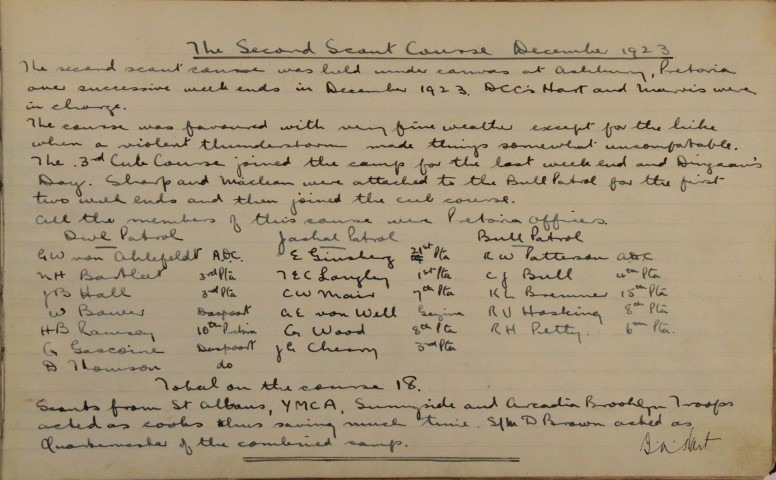 The Second Scout Course December 1923
The second scout course was held under canvas at Ashbury, Pretoria
over successive week ends in December 1923. DCC's Hart and Morris were
in charge.
The course was favoured with very fine weather except for the hike
when a violent thunderstorm made things somewhat uncomfortable.
The 3rd Cub Course joined the camp for the last week end and Dingaan's
Day. Sharp and Maclean were attached to the Bull Patrol for the first
two week ends and then joined the cub course.
All the members of this course were Pretoria officers.
Owl Patrol Jackal Patrol Bull Patrol
GW von Ahlefeldt A.D.C. E Ginsberg 21st Pta RW Patterson ADC
NH Bartlett 3rd Pta TEC Langley 1st Pta CJ Bull 4th Pta
JB Hall 3rd Pta CW Mair 7th Pta KL Bremner 15th Pta
W Bower Daspoort AE van Well Gezina RV Hosking 8th Pta
HB Ramsay 10th Pretoria G Wood 8th Pta RH Petty. 6th Pta.
G Gascoine Daspoort JG Cherry 3rd Pta
D Thomson do
Total on the course 18.
Scouts from St Albans, YMCA, Sunnyside and Arcadia Brooklyn Troops
acted as cooks thus saving much time. S/M D Brown acted as
Quartermaster of the combined camp. Hart